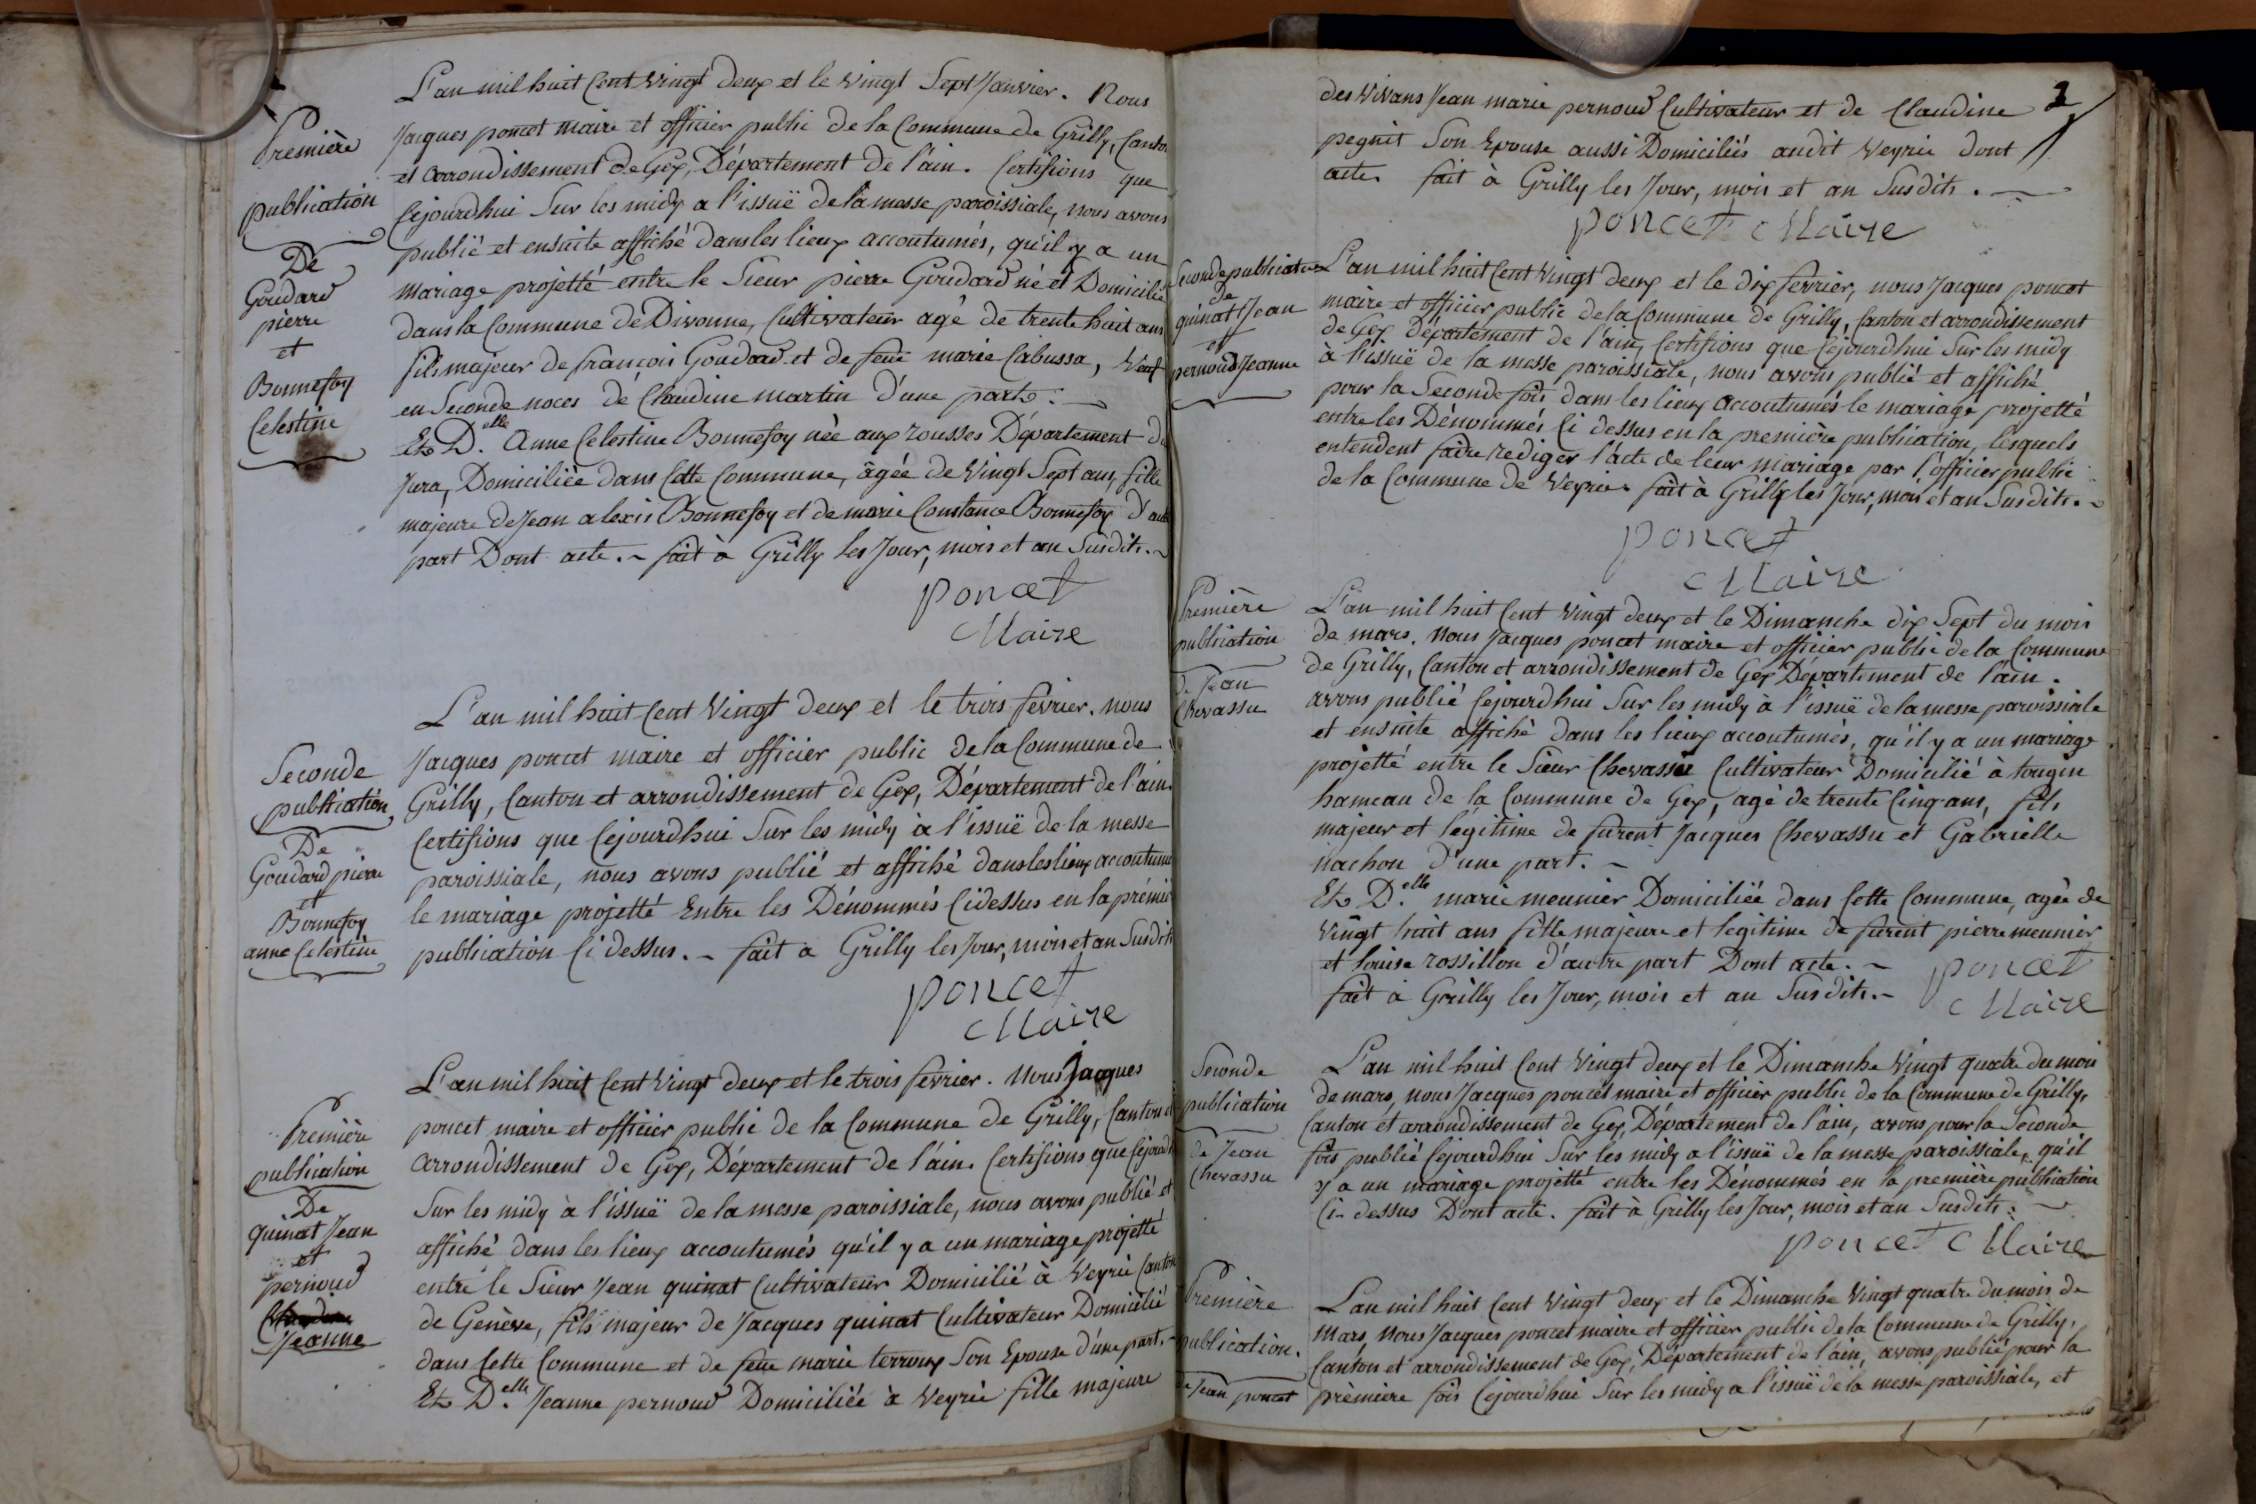 Première
publication
De
Goudard
pierre
et
Bonnefoy
Celestine
L'an mil huit Cent Vingt deux et le Vingt Sept Janvier. Nous
Jacques poncet maire et officier public de la Commune de Grilly, Canton
et arrondissement de Gex, Département de l'ain. Certifions que
Cejourdhui Sur les midy a l'issuë de la messe paroissiale, nous avons
publié et ensuite affiché dans les lieux accoutumés, qu'il y a un
Mariage projetté entre le Sieur pierre Goudard né et Domicilié
dans la Commune de Divonne, Cultivateur agé de trente huit ans
fils majeur de françois Goudard et de feue marie Cabussa, Veuf
en Seconde noces de Claudine martin d'une part.
Et D.elle Anne Celestine Bonnefoy née aux rousses Département du
Jura, Domiciliée dans Cette Commune, âgée de Vingt Sept ans, fille
majeure de Jean alexis Bonnefoy et de marie Constance Bonnefoy d'autre
part Dont acte. ~ fait à Grilly les Jour, mois et an Susdits. ~
poncet
Maire
Seconde
publication
De
Goudard pierre
et
Bonnefoy
anne Celestine
L'an mil huit Cent Vingt deux et le trois février. nous
Jacques poncet maire et officier public de la Commune de
Grilly, Canton et arrondissement de Gex, Département de l'ain.
Certifions que Cejourdhui Sur les midy à l'issuë de la messe
paroissiale, nous avons publié et affiché dans les lieux accoutumés
le mariage projetté Entre les Dénommés Cidessus en la première
publication Ci dessus. ~ fait a Grilly les Jour, mois et an Susdits
poncet
Maire
Première
publication
De
quinat Jean
et
pernoud
Jeanne
L'an mil huit Cent Vingt deux et le trois février. Nous Jacques
poncet maire et officier public de la Commune de Grilly, Canton et
arrondissement de Gex, Département de l'ain. Certifions que Cejourdhui
Sur les midy à l'issuë de la messe paroissiale, nous avons publié et
affiché dans les lieux accoutumés qu'il y a un mariage projetté
entre le Sieur Jean quinat Cultivateur Domicilié à Veyrié Canton
de Genève, fils majeur de Jacques quinat Cultivateur Domicilié
dans Cette Commune et de feue marie terroux Son Epouse d'une part. ~
Et D.elle Jeanne pernoud Domiciliée à Veyrié fille majeure
des Vivans Jean marie pernoud Cultivateur et de Claudine
pegnit Son Epouse aussi Domiciliés audit Veyrié dont
acte. fait à Grilly les Jour, mois et an Susdits.
poncet Maire
Seconde publication
de
quinat Jean
et
pernoud Jeanne
L'an mil huit Cent Vingt deux et le dix février, nous Jacques poncet
maire et officier public de la Commune de Grilly, Canton et arrondissement
de Gex Département de l'ain, Certifions que Cejourdhui Sur les midy
à l'issuë de la messe paroissiale, nous avons publié et affiché
pour la Seconde fois dans les lieux accoutumés le mariage projetté
entre les Dénommés Ci dessus en la première publication, lesquels
entendent faire rediger l'acte de leur Mariage par l'officier public
de la Commune de Veyrié. fait à Grilly les Jour, mois et an Susdits. ~
poncet
Maire
Première
publication
de Jean
Chevassu
L'an mil huit Cent Vingt deux et le Dimanche dix Sept du mois
de mars. Nous Jacques poncet maire et officier public de la Commune
de Grilly, Canton et arrondissement de Gex Département de l'ain.
avons publié Cejourdhui Sur les midy à l'issuë de la messe paroissiale
et ensuite affiché dans les lieux accoutumés, qu'il y a un mariage
projetté entre le Sieur Chevassu Cultivateur Domicilié à tougin
hameau de la Commune de Gex, agé de trente Cinq ans, fils
majeur et légitime de furent Jacques Chevassu et Gabrielle
nachon d'une part. ~
Et D.elle marie meunier Domiciliée dans Cette Commune, agée de
Vingt huit ans fille majeure et legitime de furent pierre meunier
et louise rossillon d'autre part Dont acte. ~
fait à Grilly les Jour, mois et an Susdits. ~
poncet
Maire
Seconde
publication
de Jean
Chevassu
L'an mil huit Cent Vingt deux et le Dimanche Vingt quatre du mois
de mars, nous Jacques poncet maire et officier public de la Commune de Grilly,
Canton et arrondissement de Gex, Département de l'ain, avons pour la Seconde
fois publié Cejourdhui Sur les midy a l'issuë de la messe paroissiale, qu'il
y a un mariage projetté entre les Dénommés en la première publication
Ci-dessus Dont acte. fait à Grilly les Jour, mois et an Susdits.
poncet Maire
Première
publication.
de Jean poncet
L'an mil huit Cent Vingt deux et le Dimanche Vingt quatre du mois de
Mars, Nous Jacques poncet maire et officier public de la Commune de Grilly,
Canton et arrondissement de Gex, Département de l'ain, avons publié pour la
première fois Cejourdhui Sur les midy a l'issuë de la messe paroissiale, et